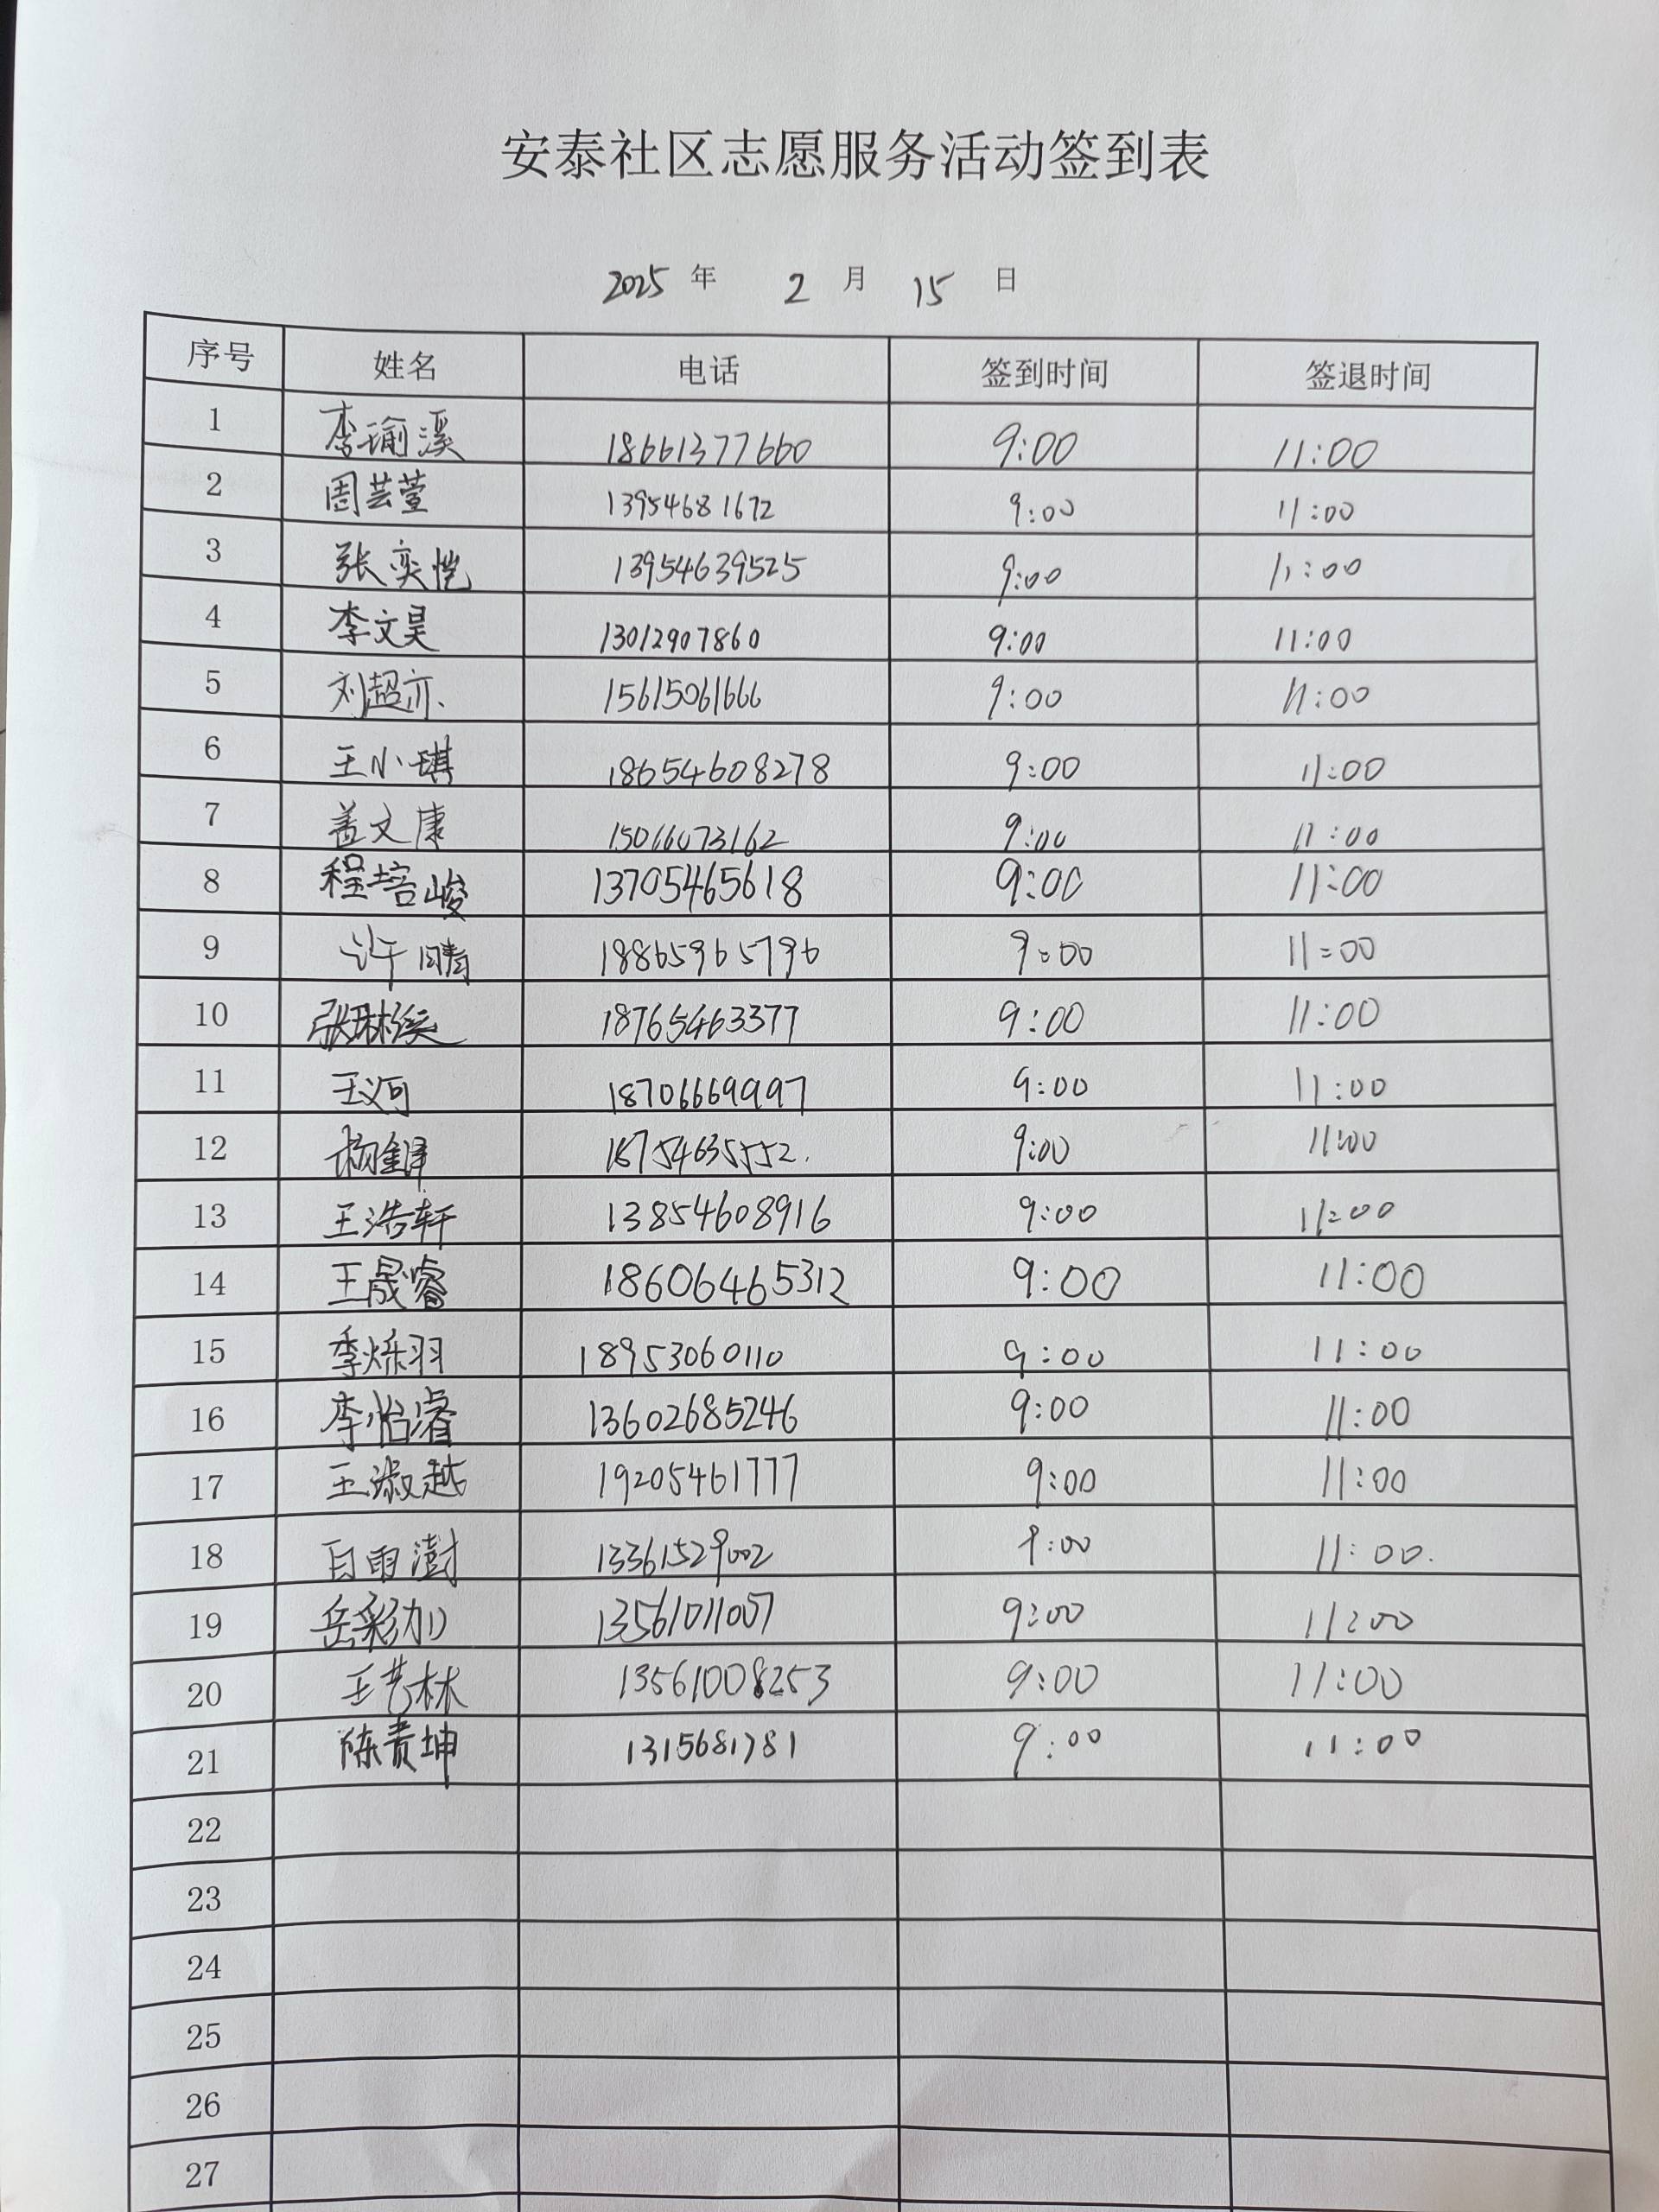 安泰社区志愿服务活动签到表
2025 年 2 月 15 日
序号 姓名 电话 签到时间 签退时间
1 李瑜溪 18661377660 9:00 11:00
2 周芸萱 13954681672 9:00 11:00
3 张奕恺 13954639525 9:00 11:00
4 李文昊 13012907860 9:00 11:00
5 刘超亦 15615061666 9:00 11:00
6 王小琪 18654608278 9:00 11:00
7 盖文康 15066073162 9:00 11:00
8 程培峻 13705465618 9:00 11:00
9 许晴 18865965796 9:00 11:00
10 18765463377 9:00 11:00
11 18706669997 9:00 11:00
12 9:00 11:00
13 王浩轩 13854608916 9:00 11:00
14 王晟睿 18606465312 9:00 11:00
15 李烁羽 18953060110 9:00 11:00
16 李怡睿 13602685246 9:00 11:00
17 王淑越 19205461777 9:00 11:00
18 白雨澍 13361529002 9:00 11:00.
19 岳彩加 13561011007 9:00 11:00
20 王艺林 13561008253 9:00 11:00
21 陈贵坤 1315681781 9:00 11:00
22
23
24
25
26
27